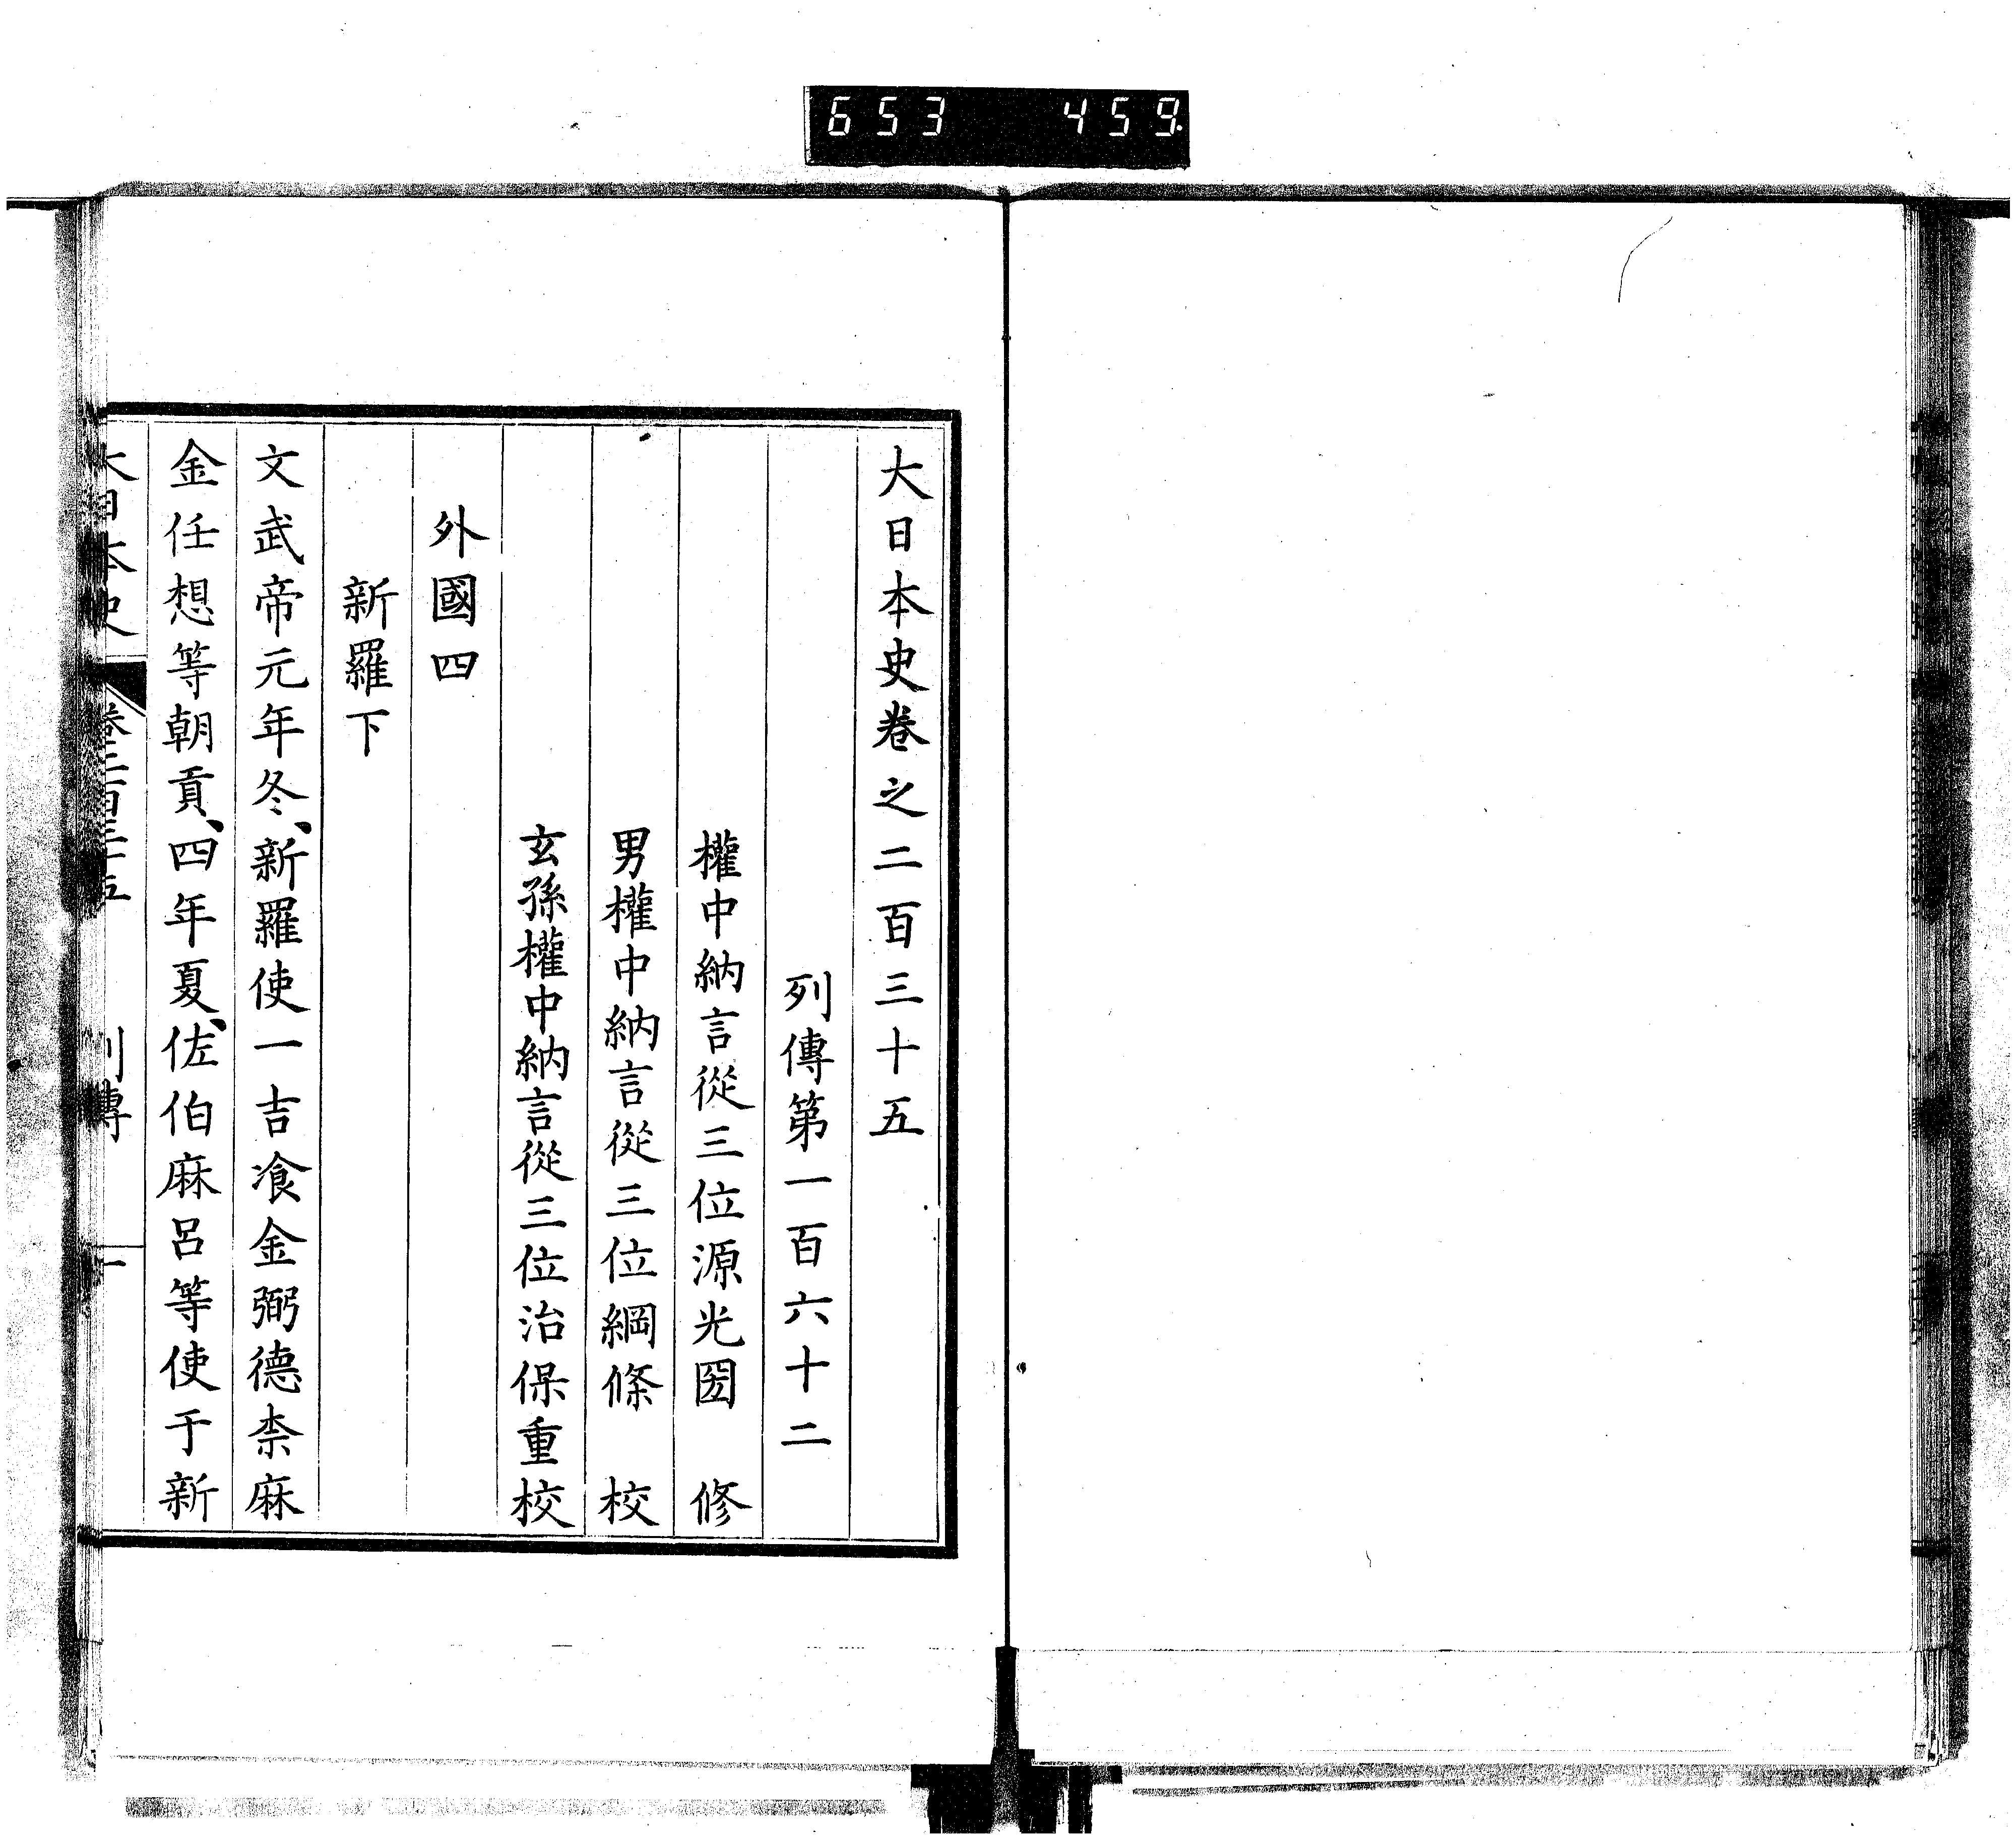 653 459
大日本史卷之二百三十五
列傳第一百六十二
權中納言從三位源光圀 修
男權中納言從三位綱條 校
玄孫權中納言從三位治保重校
外國四
新羅下
文武帝元年冬、新羅使一吉飡金弼德柰麻
金任想等朝貢、四年夏、佐伯麻呂等使于新
大日本史 卷二百三十五 列傳 一